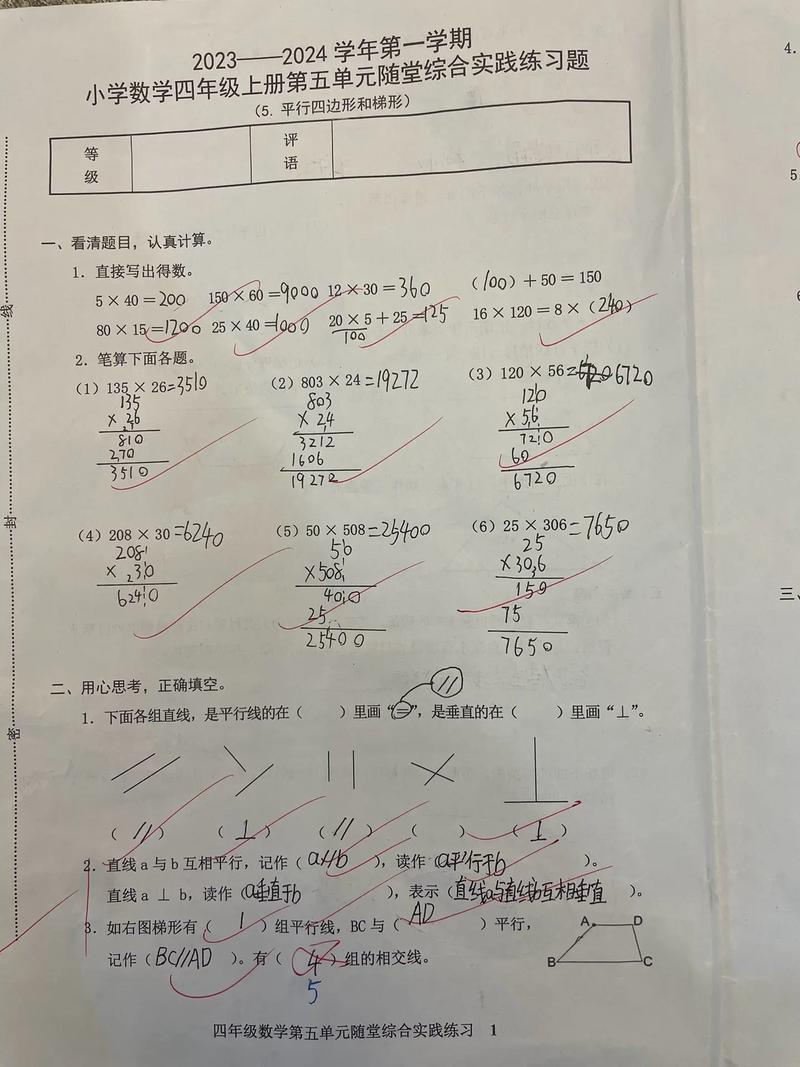 2023——2024 学年第一学期
小学数学四年级上册第五单元随堂综合实践练习题
（5. 平行四边形和梯形）
等级 评语
一、看清题目，认真计算。
1. 直接写出得数。
5 × 40 = 200 150 × 60 = 9000 12 × 30 = 360 （100）+ 50 = 150
80 × 15 = 1200 25 × 40 = 1000 20 × 5 + 25 = 125 16 × 120 = 8 ×（240）
100
2. 笔算下面各题。
（1）135 × 26 = 3510 （2）803 × 24 = 19272 （3）120 × 56 = 6720
135 803 120
× 26 × 24 × 56
810 3212 720
270 1606 60
3510 19272 6720
（4）208 × 30 = 6240 （5）50 × 508 = 25400 （6）25 × 306 = 7650
208 50 25
× 30 × 508 × 306
6240 400 150
25 75
25400 7650
二、用心思考，正确填空。
//
1. 下面各组直线，是平行线的在（ ）里画“=”，是垂直的在（ ）里画“⊥”。
（ // ） （ ⊥ ） （ // ） （ ） （ ⊥ ）
2. 直线 a 与 b 互相平行，记作（ a//b ），读作（a平行于b ）。
直线 a ⊥ b，读作（a垂直于b ），表示（直线a与直线b互相垂直 ）。
3. 如右图梯形有（ 1 ）组平行线，BC 与（ AD ）平行，
记作（ BC//AD ）。有（ 4 ）组的相交线。
5
A D
B C
四年级数学第五单元随堂综合实践练习 1
线
封
密
4.
5
三、